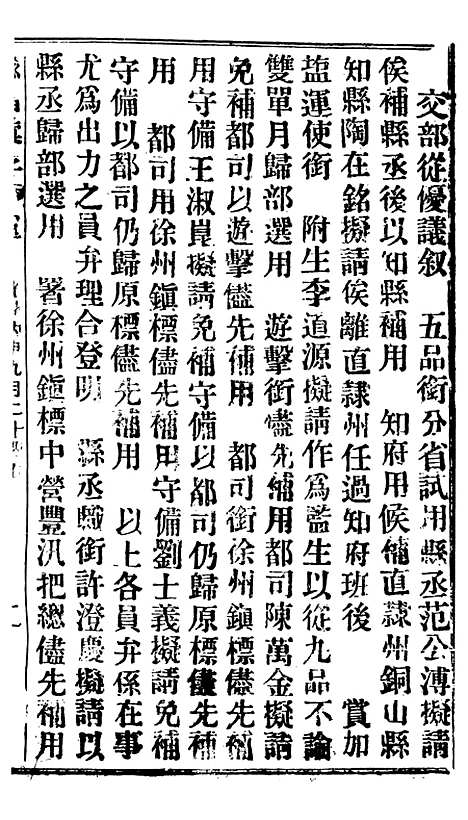 交部從優議叙　五品銜分省試用縣丞范公溥擬請
俟補縣丞後以知縣補用　知府用候補直隸州銅山縣
知縣陶在銘擬請俟離直隸州任過知府班後　賞加
鹽運使銜　附生李道源擬請作為監生以從九品不論
雙單月歸部選用　遊擊銜儘先補用都司陳萬金擬請
免補都司以遊擊儘先補用　都司銜徐州鎭標儘先補
用守備王淑崑擬請免補守備以都司仍歸原標儘先補
用　都司用徐州鎭標儘先補用守備劉士義擬請免補
守備以都司仍歸原標儘先補用　以上各員弁係在事
尤爲出力之員弁理合登明　縣丞職銜許澄慶擬請以
縣丞歸部選用　署徐州鎭標中營豐汛把總儘先補用
九月二十